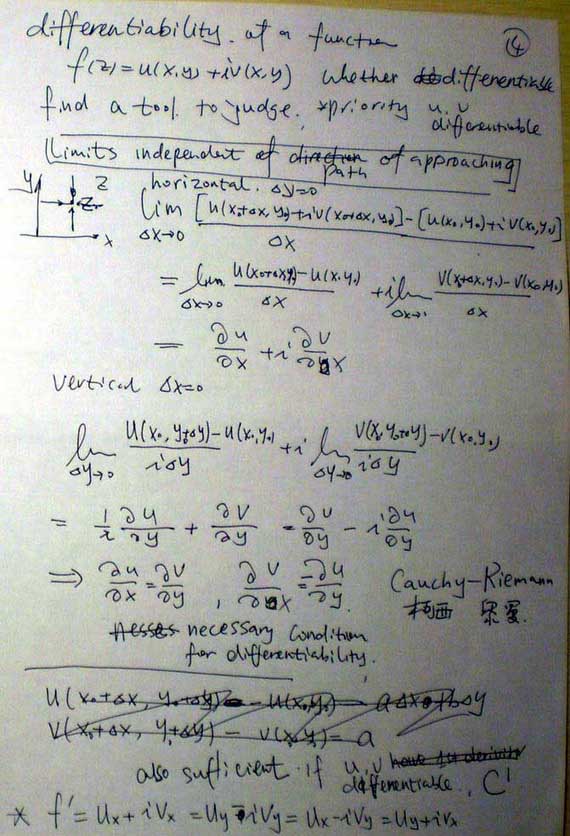 differentiability of a function
⑭
f(z)=u(x,y)+iv(x,y) whether differentiable
find a tool to judge. *priority u, v
differentiable
Limits independent of direction path of approaching
y
z
z₀
x
horizontal. Δy=0
lim Δx→0 [u(x₀+Δx, y₀)+iv(x₀+Δx, y₀)]-[u(x₀,y₀)+iv(x₀,y₀)] / Δx
= lim Δx→0 u(x₀+Δx, y₀)-u(x₀,y₀) / Δx + i lim Δx→0 v(x₀+Δx,y₀)-v(x₀,y₀) / Δx
= ∂u/∂x + i ∂v/∂x
Vertical Δx=0
lim Δy→0 u(x₀, y₀+Δy)-u(x₀,y₀) / iΔy + i lim Δy→0 v(x₀, y₀+Δy)-v(x₀,y₀) / iΔy
= 1/i ∂u/∂y + ∂v/∂y = ∂v/∂y - i ∂u/∂y
⇒ ∂u/∂x = ∂v/∂y , ∂v/∂x = -∂u/∂y. Cauchy-Riemann
柯西
necessary condition
for differentiability.
u(x₀+Δx, y₀+Δy) - u(x₀,y₀) = aΔx+bΔy
v(x₀+Δx, y₀+Δy) - v(x₀,y₀) = a
also sufficient if u, v have 1st
differentiable, C¹
* f' = ux + ivx = uy - ivy = ux - ivy = uy + ivx